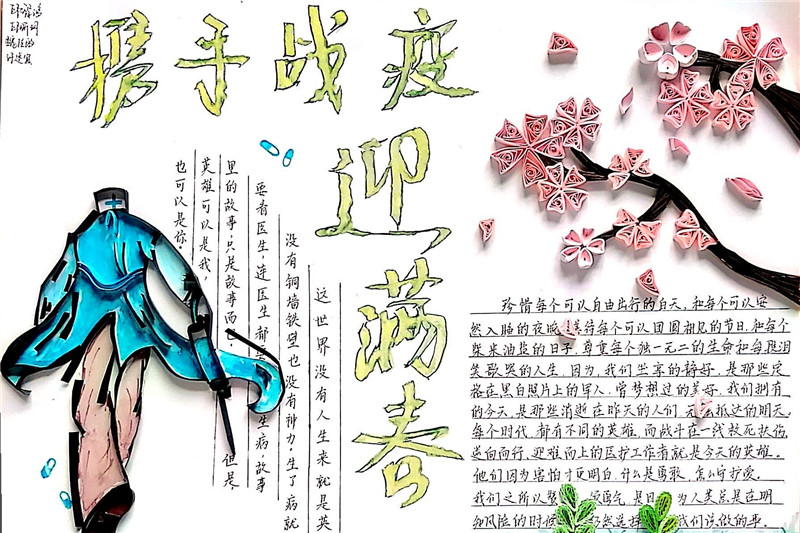 携手战疫
迎满春
这世界没有人生来就是英
没有铜墙铁壁也没有神力,生了病就
要看医生,连医生都
生病,故事
里的故事,只是故事而已
但是
英雄可以是我,
也可以是你。
珍惜每个可以自由出行的白天,和每个可以安
然入睡的夜晚,
等待每个可以团圆相见的节日,和每个
柴米油盐的日子,尊重每个独一无二的生命和每段泪
笑歌哭的人生。因为,我们坐享的静好,是那些定
格在黑白照片上的军人,曾梦想过的美好,我们拥有
的今天,是那些消逝在昨天的人们,无法抵达的明天。
每个时代,都有不同的英雄,而战斗在一线救死扶伤,
逆向而行,迎难而上的医护工作者就是今天的英雄。
他们因为害怕才更明白,什么是勇敢,怎么守护爱。
我们之所以
勇气,是
为人类总是在明
知风险的时候
仍然选择
我们该做的事。